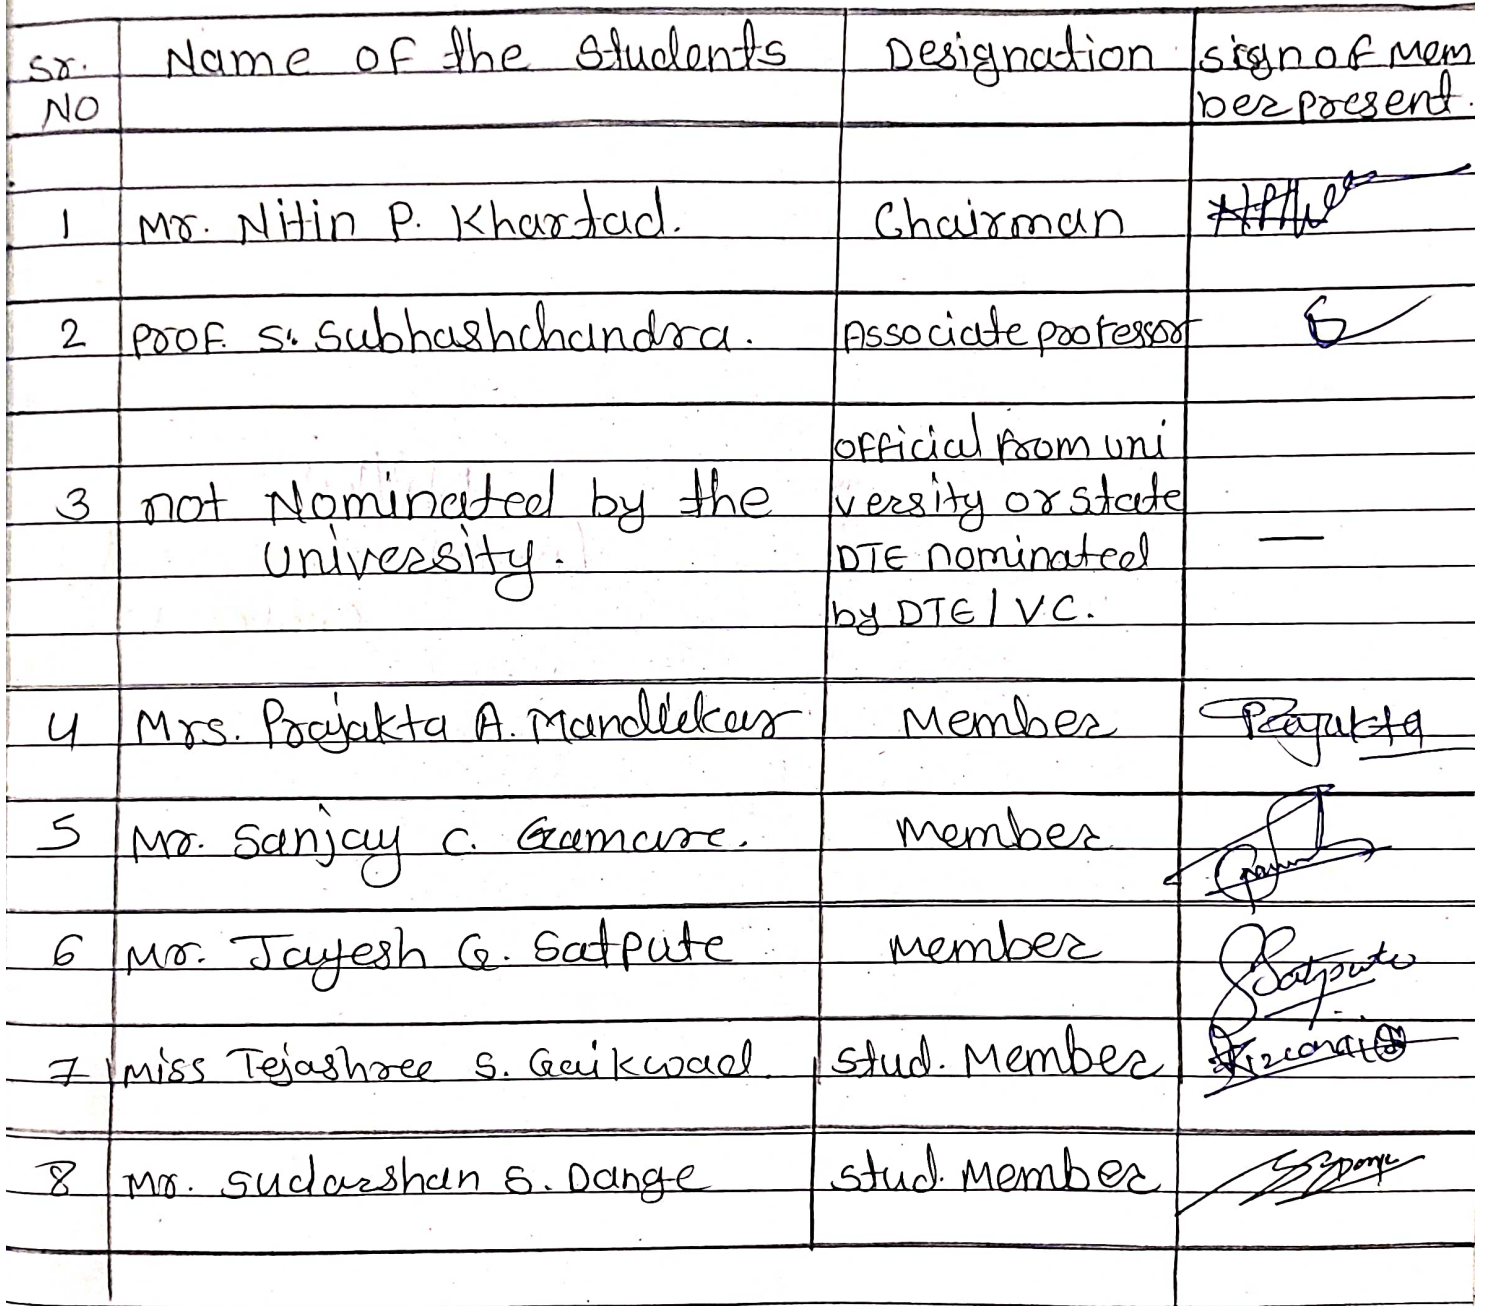 Sr. Name of the Students Designation sign of Mem
NO ber present.
1 Mr. Nitin P. Khartad. Chairman
2 Prof. S. Subhashchandra. Associate professor
official from uni
3 not Nominated by the versity or state
University. DTE nominated —
by DTE / V.C.
4 Mrs. Prajakta A. Mandlekar Member Prajakta
5 Mr. Sanjay C. Gamare. Member
6 Mr. Jayesh G. Satpute Member Satpute
7 Miss Tejashree S. Gaikwad. Stud. Member
8 Mr. Sudarshan S. Dange Stud. Member